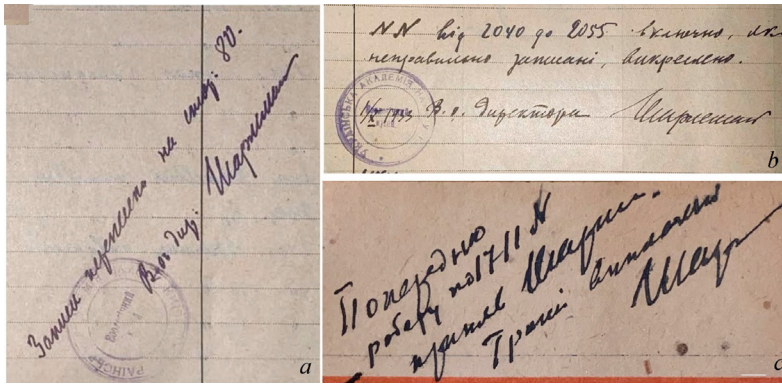 Записи перенесено на стор: 80.
В.о. дир: Шарлеман
a
NN від 2040 до 2055 включно, як
неправильно записані, викреслено.
УКРАЇНСЬКА АКАДЕМІЯ
1/X 1933 В. о. директора Шарлеман
b
Попередню
роботу по 1711 N
прийняв Шарлем.
Гроші виплачені
Шар
c